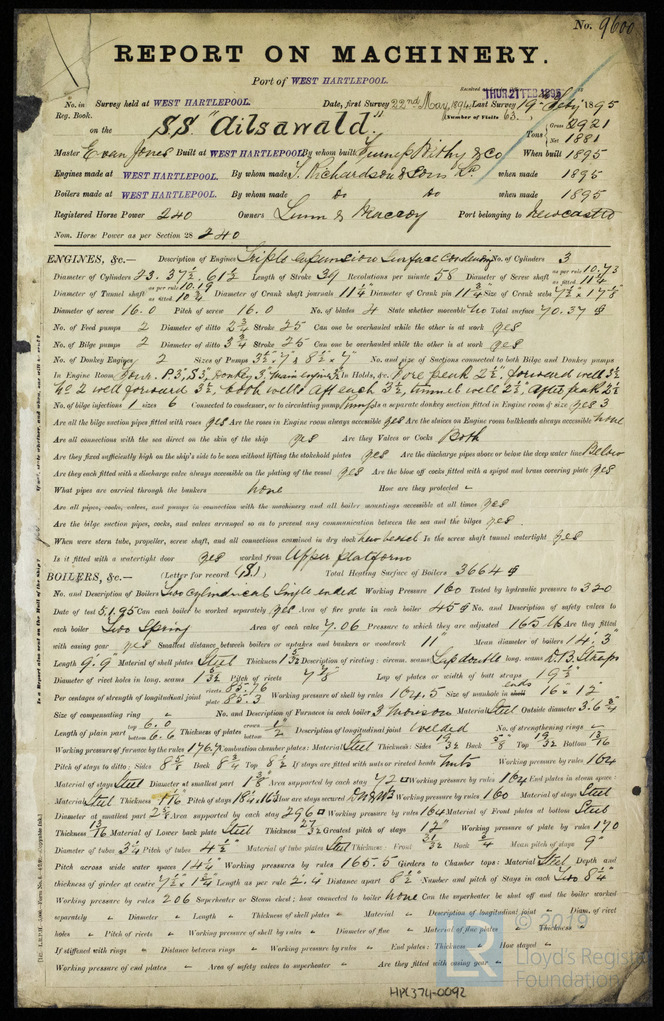 No. 9600
REPORT ON MACHINERY.
Port of WEST HARTLEPOOL.
Received THUR 21 FEB 1895
No. in Survey held at WEST HARTLEPOOL. Date, first Survey 22nd May, 1894 Last Survey 19th Feby 1895
Reg. Book. (Number of Visits 63.)
on the S.S. "Ailsawald." Tons Gross 2921 Net 1881
Master Evan Jones Built at WEST HARTLEPOOL By whom built Furness Withy & Co When built 1895
Engines made at WEST HARTLEPOOL. By whom made T. Richardson & Sons Ld. when made 1895
Boilers made at WEST HARTLEPOOL. By whom made Do Do when made 1895
Registered Horse Power 240 Owners Lunn & Maccoy Port belonging to Newcastle
Nom. Horse Power as per Section 28 240
ENGINES, &c.— Description of Engines Triple Expansion Surface Condensing No. of Cylinders 3
Diameter of Cylinders 23. 37½. 61½ Length of Stroke 39 Revolutions per minute 58 Diameter of Screw shaft as per rule 10.73 as fitted 11¼
Diameter of Tunnel shaft as per rule 10.19 as fitted 10¾ Diameter of Crank shaft journals 11¼ Diameter of Crank pin 11¾ Size of Crank webs 7½ × 17⅞
Diameter of screw 16.0 Pitch of screw 16.0 No. of blades 4 State whether moveable No Total surface 70.37
No. of Feed pumps 2 Diameter of ditto 2¾ Stroke 25 Can one be overhauled while the other is at work yes
No. of Bilge pumps 2 Diameter of ditto 3¾ Stroke 25 Can one be overhauled while the other is at work yes
No. of Donkey Engines 2 Sizes of Pumps 3½ × 7 & 8½ × 7 No. and size of Suctions connected to both Bilge and Donkey pumps
In Engine Room donkey 3" main engine 3½ In Holds, &c. Fore peak 2½, forward well 3½
No 2 well forward 3½, both wells aft each 3½, tunnel well 2½, After peak 2½
No. of bilge injections 1 sizes 6 Connected to condenser, or to circulating pump Pump Is a separate donkey suction fitted in Engine room & size yes 3
Are all the bilge suction pipes fitted with roses yes Are the roses in Engine room always accessible yes Are the sluices on Engine room bulkheads always accessible none
Are all connections with the sea direct on the skin of the ship yes Are they Valves or Cocks Both
Are they fixed sufficiently high on the ship's side to be seen without lifting the stokehold plates yes Are the discharge pipes above or below the deep water line Below
Are they each fitted with a discharge valve always accessible on the plating of the vessel yes Are the blow off cocks fitted with a spigot and brass covering plate yes
What pipes are carried through the bunkers none How are they protected -
Are all pipes, cocks, valves, and pumps in connection with the machinery and all boiler mountings accessible at all times yes
Are the bilge suction pipes, cocks, and valves arranged so as to prevent any communication between the sea and the bilges yes.
When were stern tube, propeller, screw shaft, and all connections examined in dry dock New vessel Is the screw shaft tunnel watertight yes
Is it fitted with a watertight door yes worked from Upper platform
BOILERS, &c.— (Letter for record (S.)) Total Heating Surface of Boilers 3664
No. and Description of Boilers Two Cylindrical Single ended Working Pressure 160 Tested by hydraulic pressure to 320
Date of test 5.1.95 Can each boiler be worked separately yes Area of fire grate in each boiler 45 No. and Description of safety valves to
each boiler Two Spring Area of each valve 7.06 Pressure to which they are adjusted 165 lb Are they fitted
with easing gear yes Smallest distance between boilers or uptakes and bunkers or woodwork 11" Mean diameter of boilers 14'.3"
Length 9'.9 Material of shell plates Steel Thickness 1 3/32 Description of riveting: circum. seams Lap double long. seams D.B. Straps
Diameter of rivet holes in long. seams 1 3/32 Pitch of rivets 7⅞ Lap of plates or width of butt straps 19½
Per centages of strength of longitudinal joint rivets 85.76 plate 85.3 Working pressure of shell by rules 164.5 Size of manhole in ends 16 × 12
Size of compensating ring - No. and Description of Furnaces in each boiler 3 Morison Material Steel Outside diameter 3.6¾
Length of plain part top 6.0 bottom 6.6 Thickness of plates crown bottom ½ Description of longitudinal joint welded No. of strengthening rings -
Working pressure of furnace by the rules 176.7 Combustion chamber plates: Material Steel Thickness: Sides 19/32 Back ⅝ Top 19/32 Bottom 13/16
Pitch of stays to ditto: Sides 8⅝ Back 8¾ Top 8½ If stays are fitted with nuts or riveted heads Nuts Working pressure by rules 164
Material of stays Steel Diameter at smallest part 1⅜ Area supported by each stay 72 Working pressure by rules 164 End plates in steam space:
Material Steel Thickness 1 1/16 Pitch of stays How are stays secured D.N.&W Working pressure by rules 160 Material of stays Steel
Diameter at smallest part Area supported by each stay 296 Working pressure by rules 164 Material of Front plates at bottom Steel
Thickness 13/16 Material of Lower back plate Steel Thickness 27/32 Greatest pitch of stays 12" Working pressure of plate by rules 170
Diameter of tubes 3¼ Pitch of tubes 4½ Material of tube plates Steel Thickness: Front 25/32 Back ¾ Mean pitch of stays 9"
Pitch across wide water spaces 14¼ Working pressures by rules 165.5 Girders to Chamber tops: Material Steel Depth and
thickness of girder at centre 7½ × 1¾ Length as per rule 2'.4 Distance apart 8½ Number and pitch of Stays in each Two 8¼
Working pressure by rules 206 Superheater or Steam chest; how connected to boiler None Can the superheater be shut off and the boiler worked
separately " Diameter " Length " Thickness of shell plates " Material " Description of longitudinal joint " Diam. of rivet
holes " Pitch of rivets " Working pressure of shell by rules " Diameter of flue " Material of flue plates " Thickness "
If stiffened with rings " Distance between rings " Working pressure by rules " End plates: Thickness How stayed "
Working pressure of end plates " Area of safety valves to superheater " Are they fitted with easing gear "
HPL374-0092
© 2019
LR
Lloyd's Register
Foundation